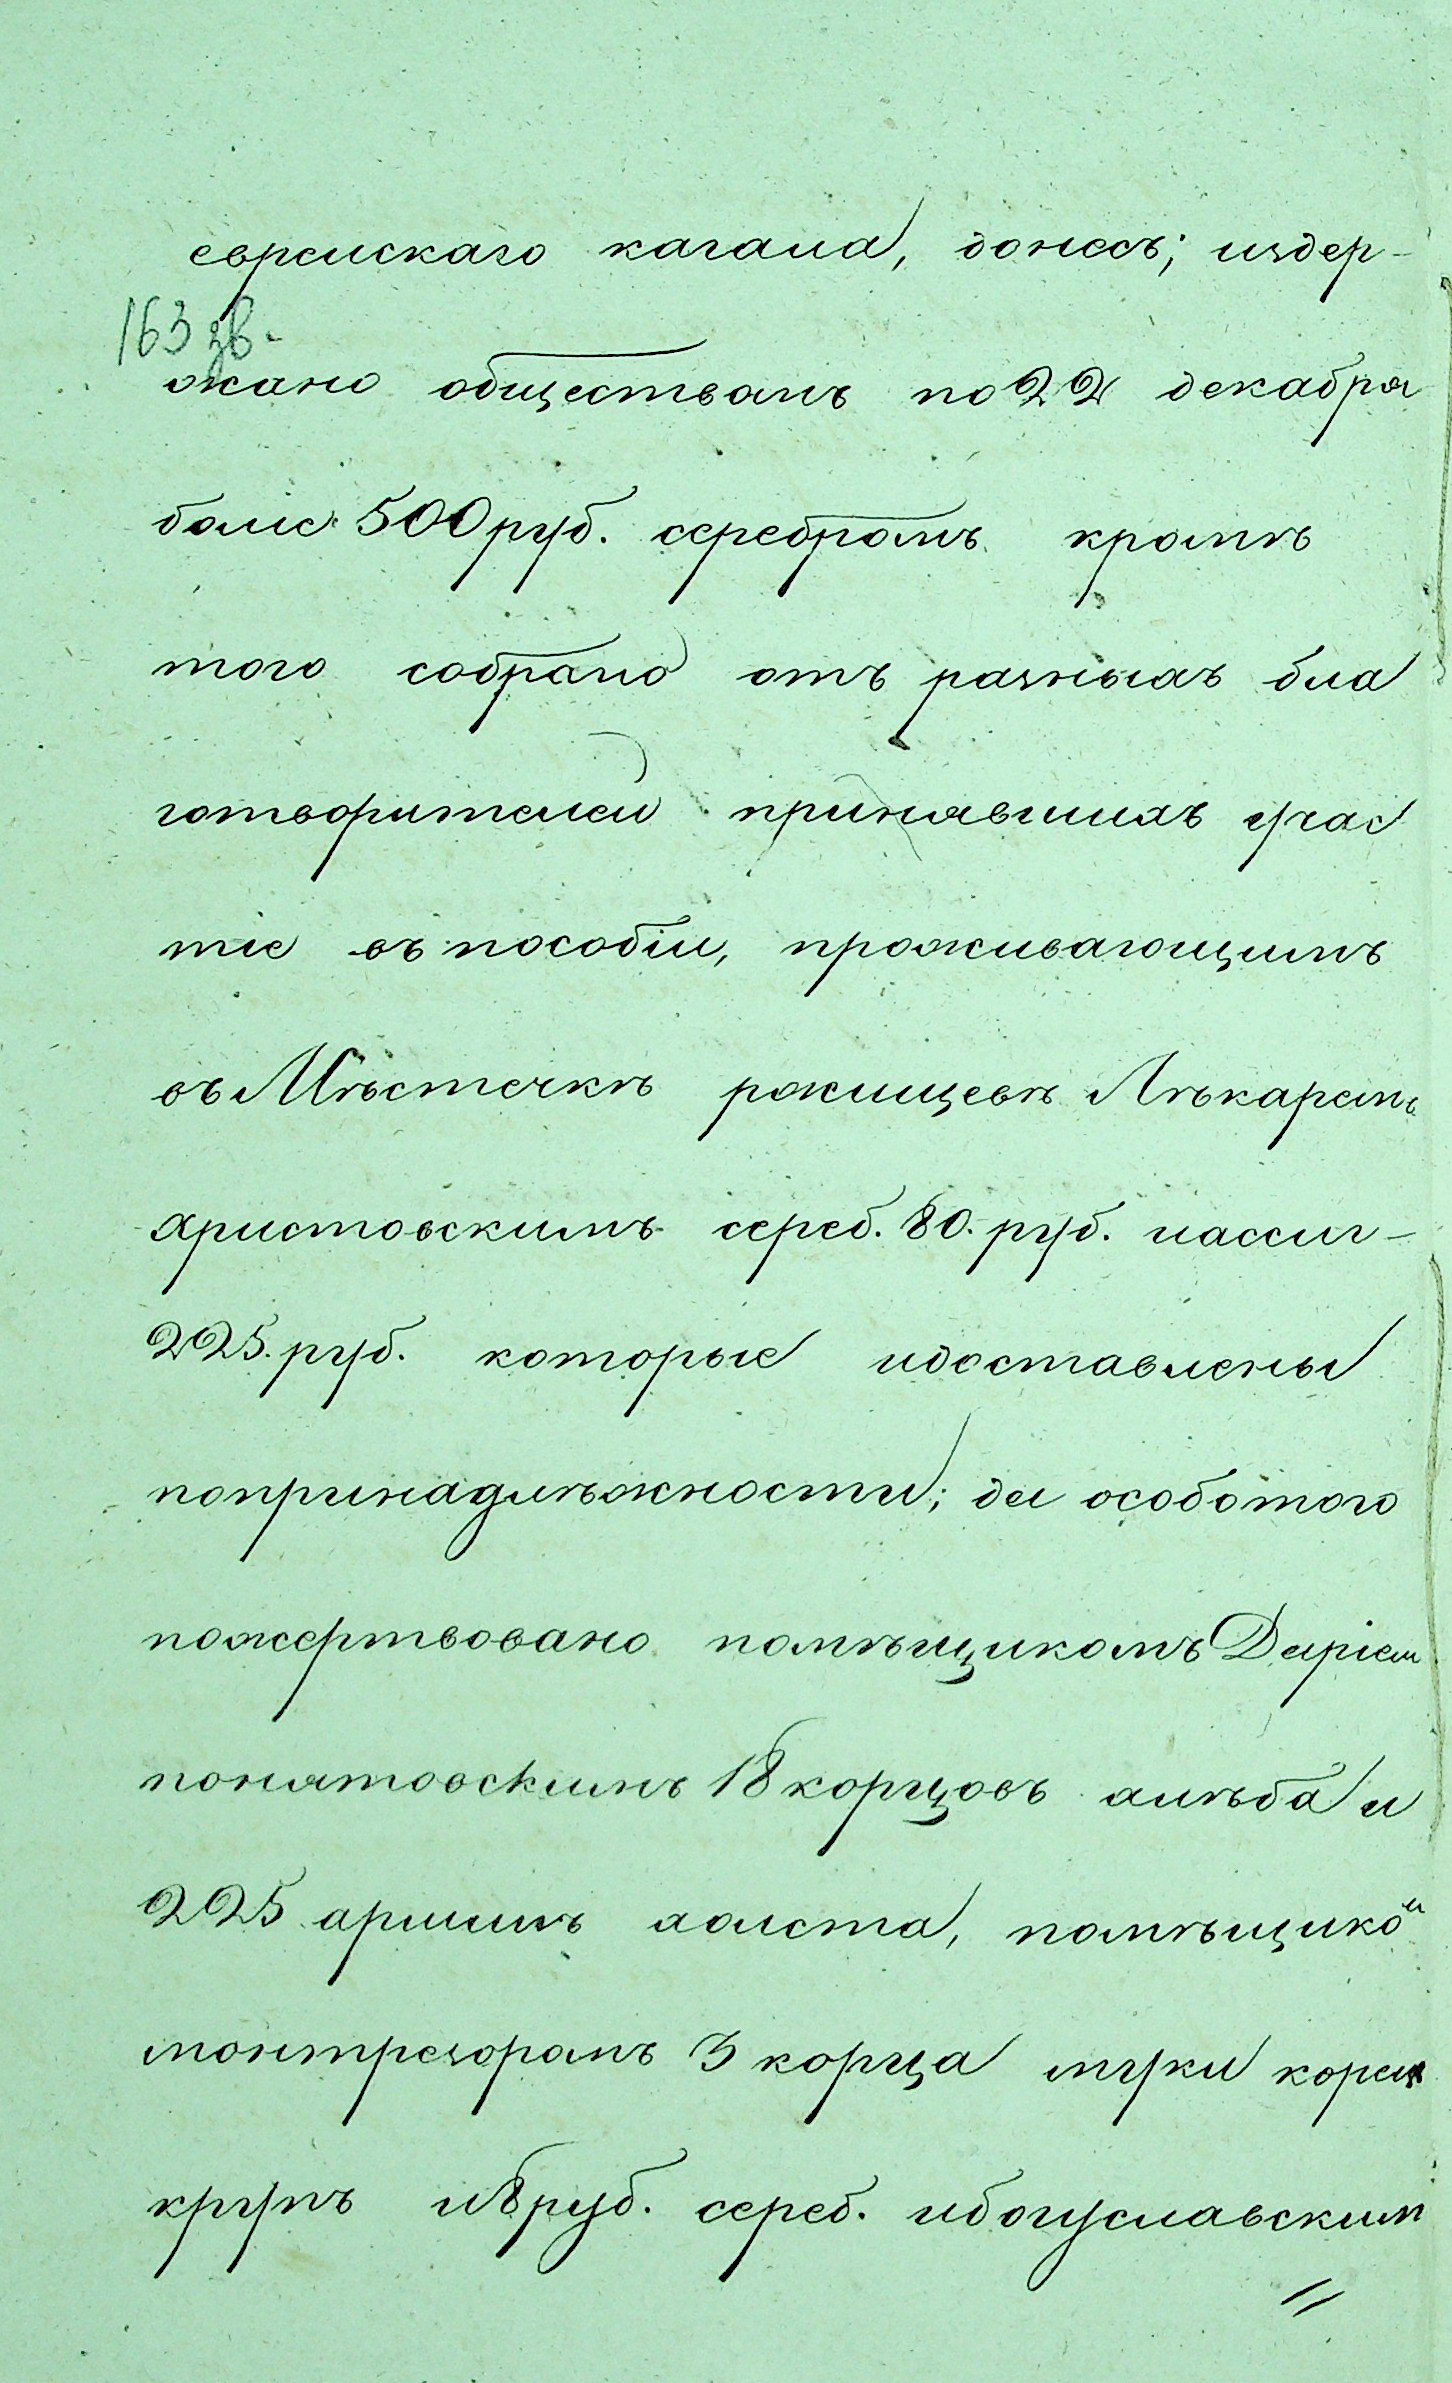 еврейскаго кагала, донесъ; издер-
163 зв.
жано обществомъ по 22 декабря
боліе 500 руб. серебромъ кромѣ
того собрано отъ разныхъ бла
готворителей принявшихъ учас
тіе въ пособіи, проживающимъ
въ Мѣстечкѣ рожищевѣ Лѣкаремъ
христовскимъ сереб. 80. руб. иассиг-
225. руб. которые идоставлены
попринадлѣжности; да особотого
пожертвовано помѣщикомъ Даріем
понятовскимъ 18 корцовъ хлѣба и
225 аршинъ холста, помѣщиком
монтрезоромъ 3 корца муки корец
крупъ и 8 руб. сереб. ибогуславским